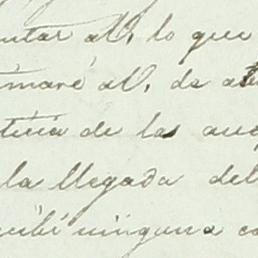 ntar all, lo que
maré all. de
ticia de las aug
la llegada del
cibí ninguna co